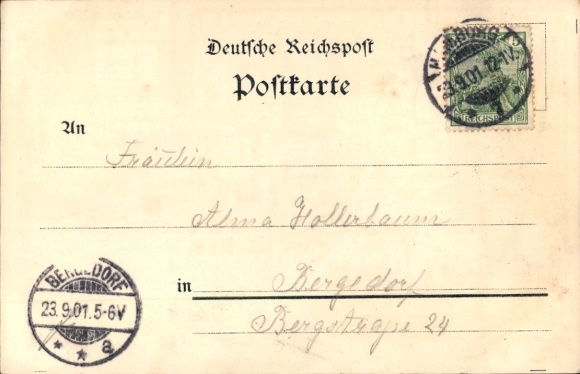 Deutsche Reichspost
Postkarte
HAMBURG
23.9.01.12-1V
* 1 *
5
REICHSPOST
An
Fräulein
Alma Hollerbaum
in Bergedorf
Bergstraße 24
BERGEDORF
23.9.01.5-6V
* * a